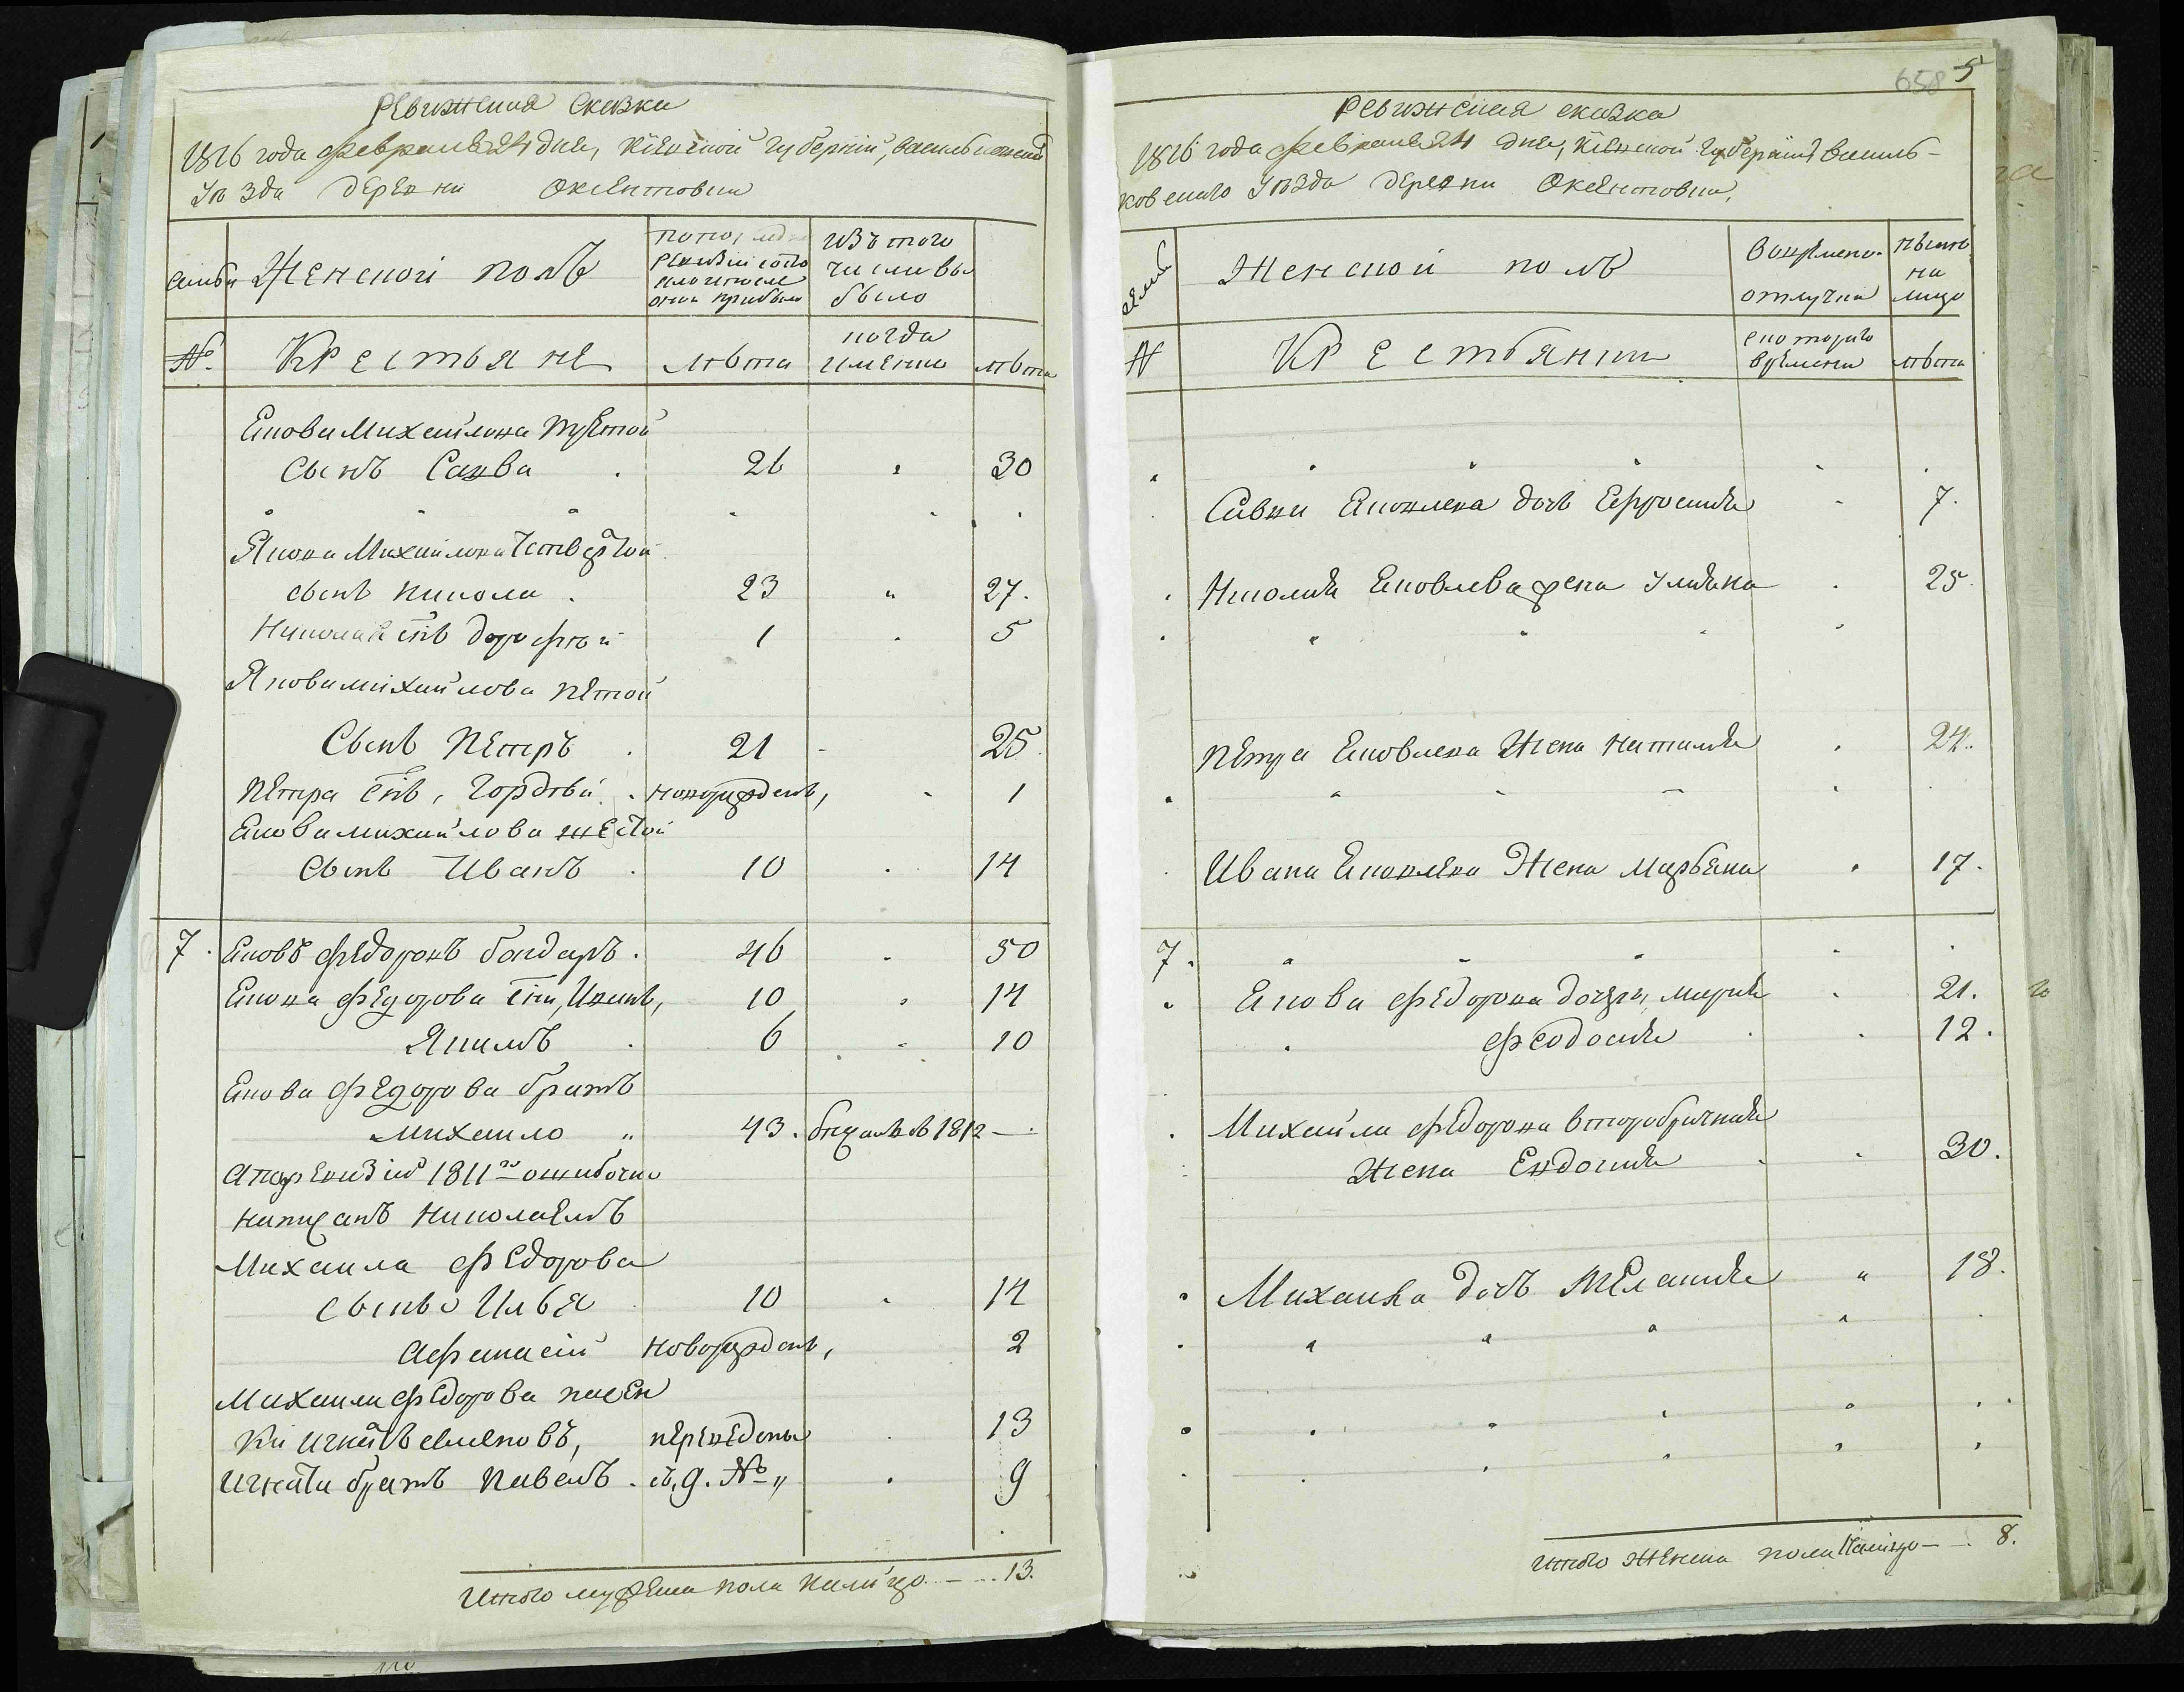 Ревижская сказка
1816 года февраля 24 дня, Кіевской губерніи, Васильковскаго
Уѣзда деревни Оксентовки
семьи
Женской полъ
по последней
ревизіи состояло и после
оной прибыло
изъ того
числа вы
было
№.
Крестьяне
лѣта
когда
именно
лѣта
Якова Михайлова третой
сынъ Савва . 26 " 30
Якова Михайлова четвертой
сынъ Никола . 23 " 27.
Николая снъ Дорофѣй 1 5
Якова Михайлова пятой
Сынъ Петръ . 21 - 25.
Петра снъ, Гордѣй . новорожденъ, 1
Якова Михайлова шестой
Сынъ Иванъ . 10 . 14
7. Яковъ Федоровъ бондаръ . 46 . 50
Якова Федорова сни, 10 14
Якимъ . 6 10
Якова Федорова братъ
Михайло " 43. 1812 —
а по ревизіи 1811го ошибочно
написанъ Николаемъ
Михаила Федорова
сынъ Илья 10 14
Афанасій новорожденъ, 2
Михаила Федорова пасен
ки Игнатъ Семеновъ, переведены . 13
Игната братъ Павелъ . съ, 9. № " . 9
Итого мужеска пола налицо — 13.
658 5
Ревижская сказка
1816 года февраля 24 дня, Кіевской губерніи Василь-
ковскаго Уѣзда деревни Оксентовки,
семьи
Женской полъ
во временной
отлучки
ныне
на
лицо
№
Крестьянки
с котораго
времени
лѣта
Савки Яковлева дочь Ефросинія - 7.
Николая Яковлева жена Ульяна . 25
Петра Яковлева Жена Наталія . 24.
Ивана Яковлева Жена Марьяна . 17.
7.
Якова Федорова дочери, Марія . 21.
Феодосия . 12.
Михайла Федорова второбрачная
Жена Евдокия . 30.
Михаила дочь Меланія " 18.
Итого женска пола налицо — 8.